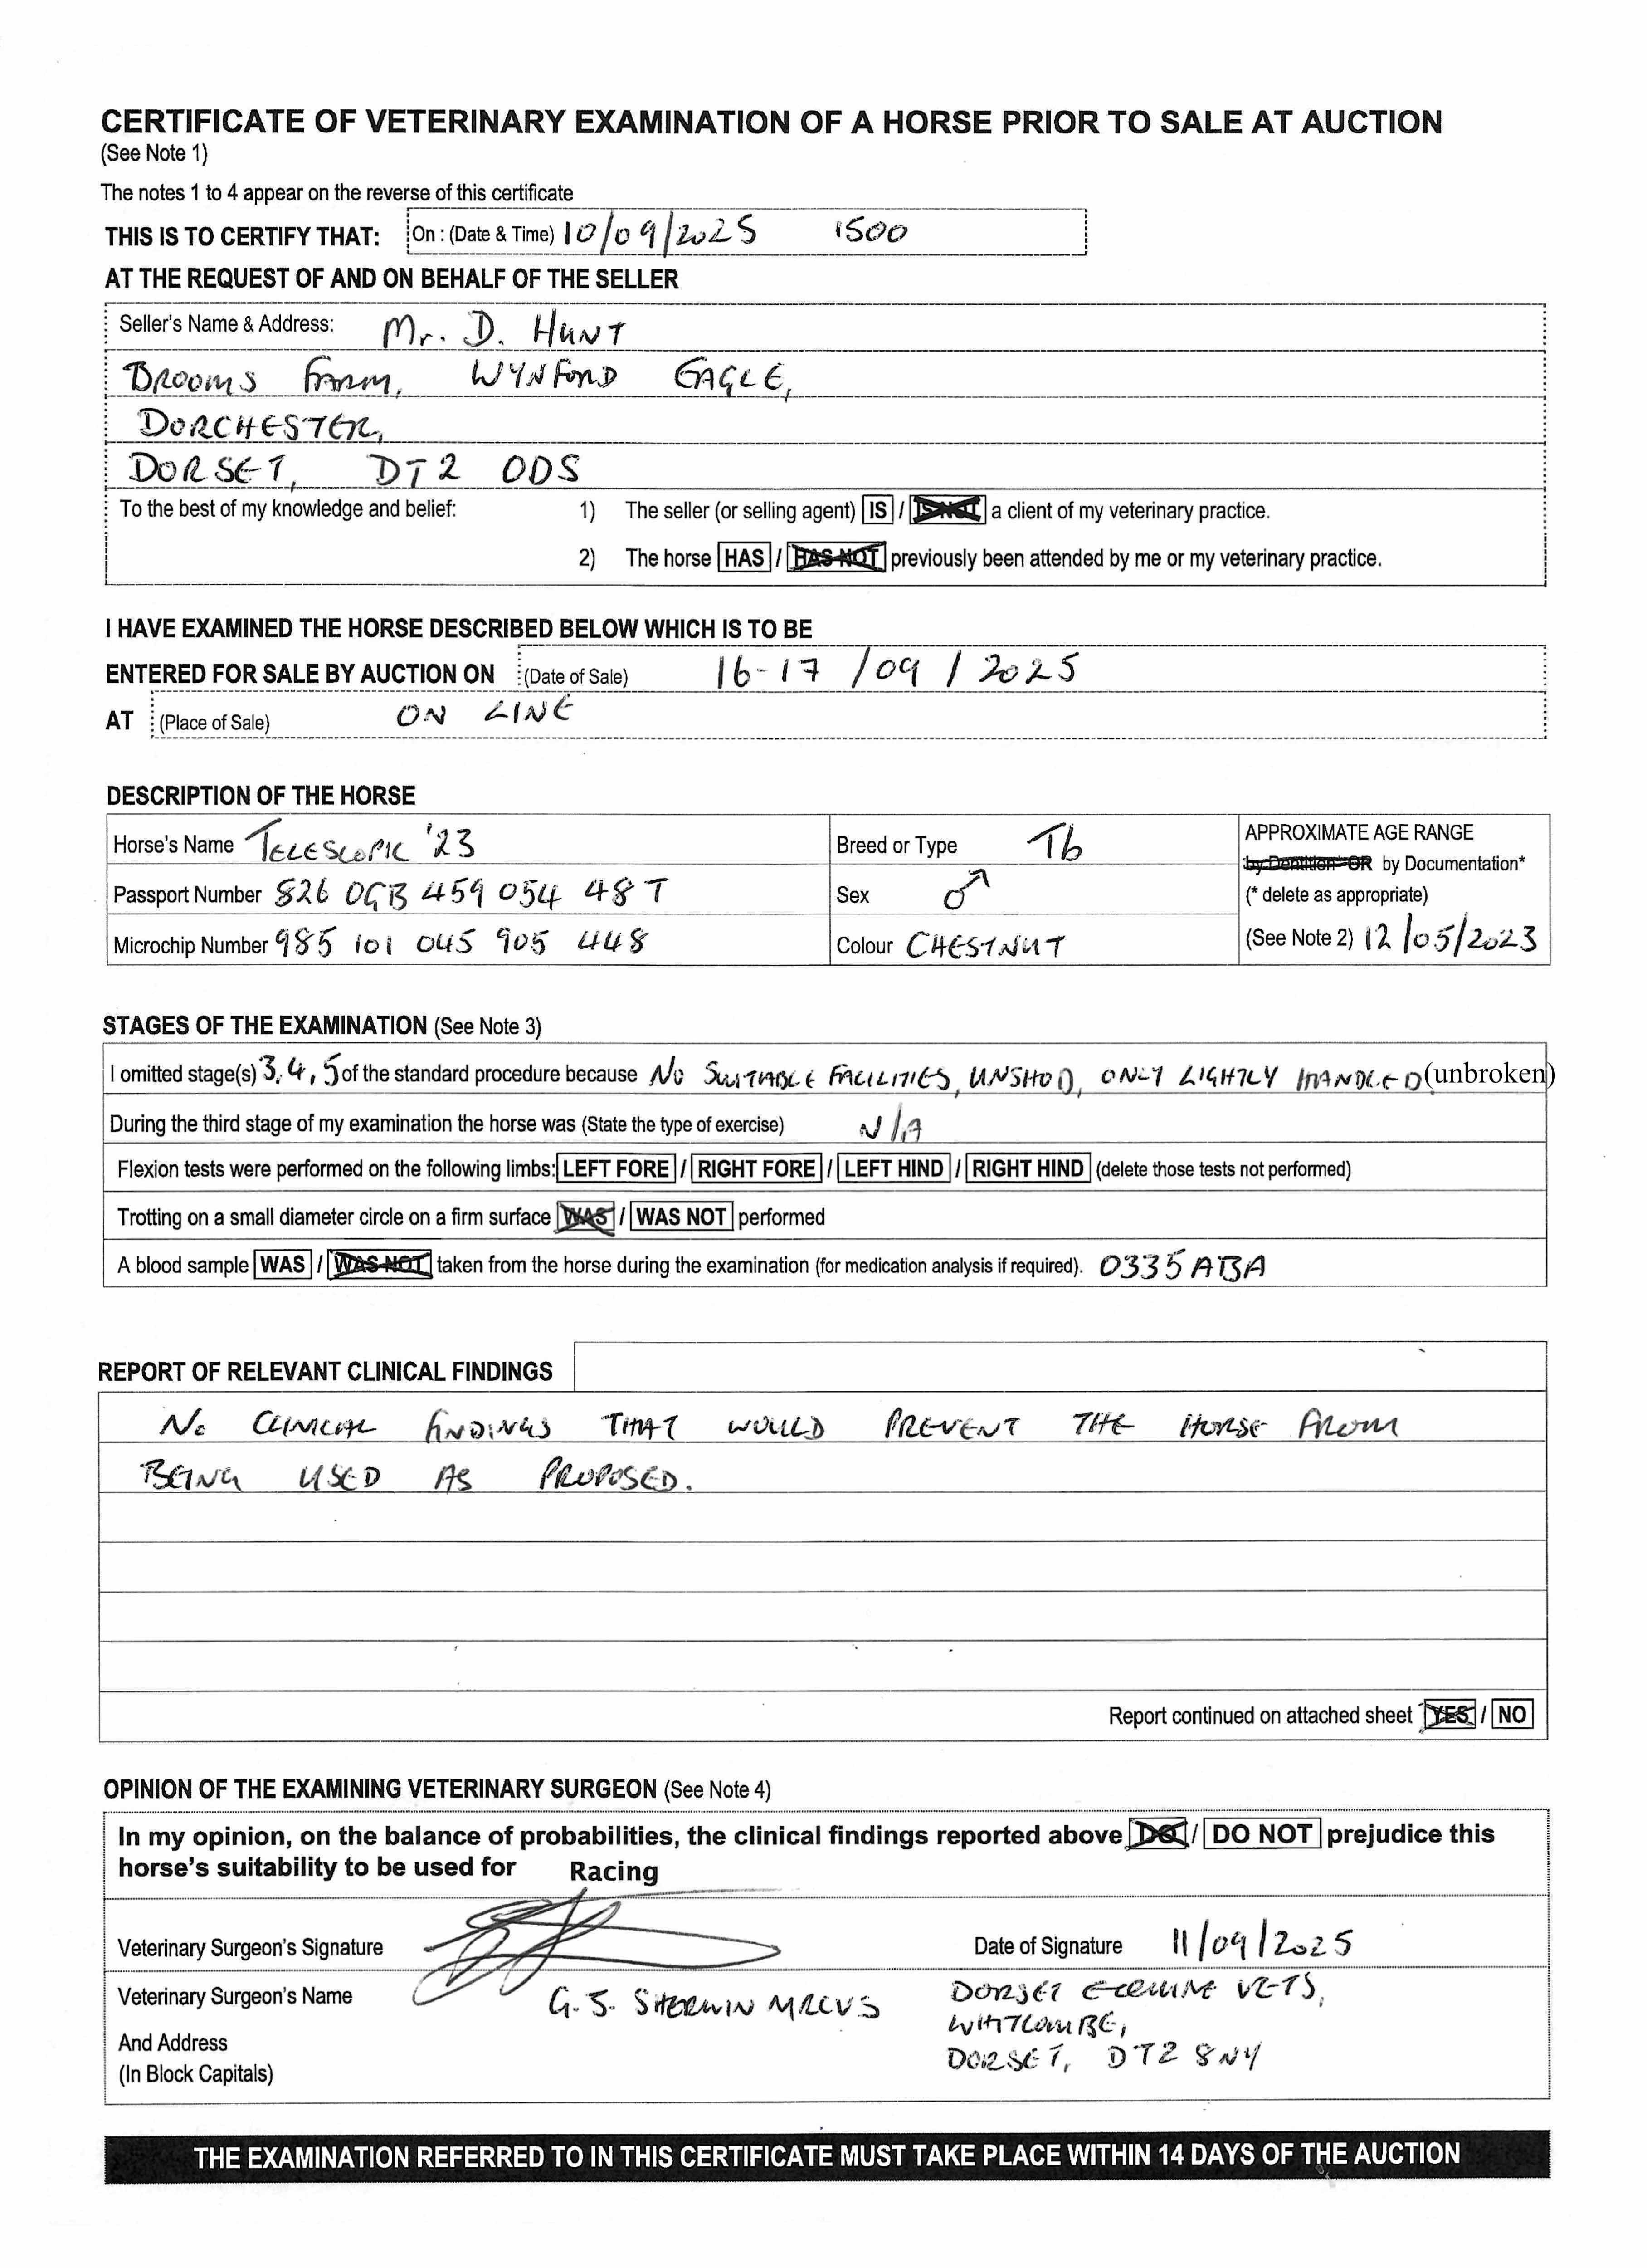 CERTIFICATE OF VETERINARY EXAMINATION OF A HORSE PRIOR TO SALE AT AUCTION
(See Note 1)
The notes 1 to 4 appear on the reverse of this certificate
THIS IS TO CERTIFY THAT: On : (Date & Time) 10/09/2025 1500
AT THE REQUEST OF AND ON BEHALF OF THE SELLER
Seller's Name & Address: Mr. D. HUNT
BROOMS FARM, WYNFORD EAGLE,
DORCHESTER,
DORSET, DT2 0DS
To the best of my knowledge and belief: 1) The seller (or selling agent) IS / IS NOT a client of my veterinary practice.
2) The horse HAS / HAS NOT previously been attended by me or my veterinary practice.
I HAVE EXAMINED THE HORSE DESCRIBED BELOW WHICH IS TO BE
ENTERED FOR SALE BY AUCTION ON (Date of Sale) 16-17 /09 / 2025
AT (Place of Sale) ON LINE
DESCRIPTION OF THE HORSE
Horse's Name TELESCOPIC '23 Breed or Type Tb APPROXIMATE AGE RANGE
by Dentition* OR by Documentation*
Passport Number 826 0GB 459 054 48 T Sex ♂ (* delete as appropriate)
Microchip Number 985 101 045 905 448 Colour CHESTNUT (See Note 2) 12/05/2023
STAGES OF THE EXAMINATION (See Note 3)
I omitted stage(s) 3, 4, 5 of the standard procedure because NO SUITABLE FACILITIES, UNSHOD, ONLY LIGHTLY HANDLED (unbroken)
During the third stage of my examination the horse was (State the type of exercise) N/A
Flexion tests were performed on the following limbs: LEFT FORE / RIGHT FORE / LEFT HIND / RIGHT HIND (delete those tests not performed)
Trotting on a small diameter circle on a firm surface WAS / WAS NOT performed
A blood sample WAS / WAS NOT taken from the horse during the examination (for medication analysis if required). 0335 ABA
REPORT OF RELEVANT CLINICAL FINDINGS
No CLINICAL FINDINGS THAT WOULD PREVENT THE HORSE FROM
BEING USED AS PROPOSED.
Report continued on attached sheet YES / NO
OPINION OF THE EXAMINING VETERINARY SURGEON (See Note 4)
In my opinion, on the balance of probabilities, the clinical findings reported above DO / DO NOT prejudice this
horse's suitability to be used for Racing
Veterinary Surgeon's Signature Date of Signature 11/09/2025
Veterinary Surgeon's Name G. S. SHERWIN MRCVS DORSET EQUINE VETS,
And Address WHITCOMBE,
(In Block Capitals) DORSET, DT2 8NY
THE EXAMINATION REFERRED TO IN THIS CERTIFICATE MUST TAKE PLACE WITHIN 14 DAYS OF THE AUCTION